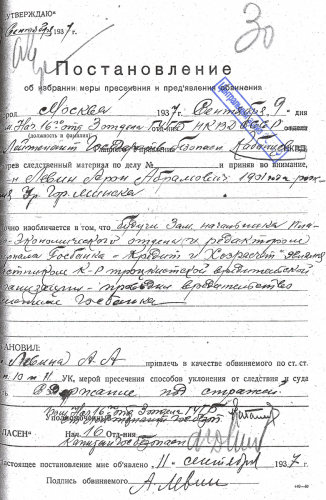 УТВЕРЖДАЮ"
Сентября 1937 г.
30
Постановление
об избрании меры пресечения и пред'явления обвинения
город Москва 1937 г. Сентября 9 дня
Нач. 16 отд. 3 отдела ГУГБ НКВД СССР
(должность и фамилия)
Лейтенант Государств. безопасн.
рев следственный материал по делу № и приняв во внимание,
Левин Арон Абрамович 1901 года рож
ур. гор. Минска
очно изобличается в том, что будучи Зам. начальника Пла
Экономического отдела и редактором
рнала Госбанка - Кредит и Хозрасчет являлся
астником К-Р троцкистской вредительской
ганизации - проводил вредительство
системе Госбанка
АНОВИЛ:
Левина А. А. привлечь в качестве обвиняемого по ст. ст.
10 и 11 УК, мерой пресечения способов уклонения от следствия и суда
содержание под стражей.
Пом. Нач. 16 отд. 3 отдела ГУГБ
Уполномоченный
ЛАСЕН" Нач. 16 Отд-ния
Капитан Госбезопасн.
астоящее постановление мне об'явлено 11 сентября 1937 г.
Подпись обвиняемого А. Левин